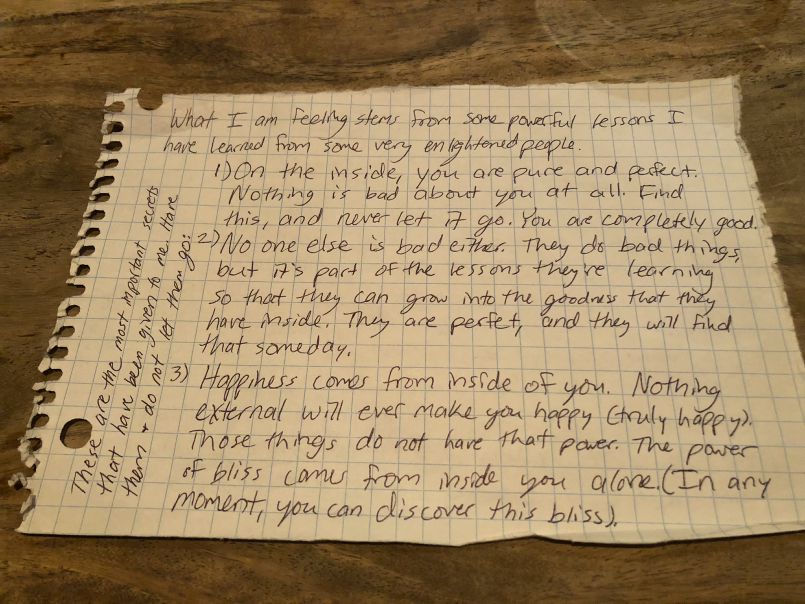 What I am feeling stems from some powerful lessons I
have learned from some very enlightened people.
1) On the inside, you are pure and perfect.
Nothing is bad about you at all. Find
this, and never let it go. You are completely good.
2) No one else is bad either. They do bad things,
but it's part of the lessons they're learning
so that they can grow into the goodness that they
have inside. They are perfet, and they will find
that someday.
3) Happiness comes from inside of you. Nothing
external will ever make you happy (truly happy).
Those things do not have that power. The power
of bliss comes from inside you alone. (In any
moment, you can discover this bliss).
These are the most important secrets
that have been given to me. Have
them + do not let them go: